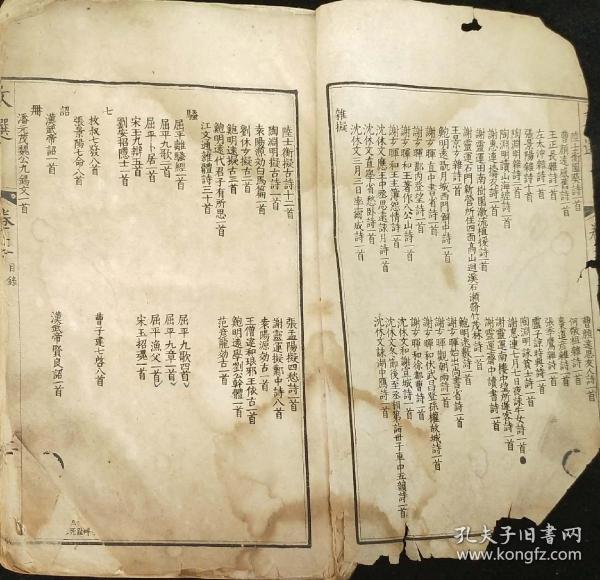 陸士衡園葵詩一首
曹顏遠思友人詩一首
曹顏遠感舊詩一首
何敬祖雜詩一首
王正長雜詩一首
棗道彥雜詩一首
左太沖雜詩一首
張季鷹雜詩一首
張景陽雜詩十首
盧子諒時興詩一首
陶淵明雜詩二首
陶淵明詠貧士詩一首
陶淵明讀山海經詩一首
謝惠連七月七日夜詠牛女詩一首
謝惠連擣衣詩一首
謝靈運南樓中望所遲客詩一首
謝靈運田南樹園激流植援詩一首
謝靈運齋中讀書詩一首
謝靈運石門新營所住四面高山迴溪石瀨脩竹茂林詩一首
王景玄雜詩一首
鮑明遠數詩一首
鮑明遠翫月城西門解中詩一首
謝玄暉始出尚書省詩一首
謝玄暉直中書省詩一首
謝玄暉觀朝雨詩一首
謝玄暉郡內登望詩一首
謝玄暉和伏武昌登孫權故城詩一首
謝玄暉和王著作八公山詩一首
謝玄暉和徐都曹詩一首
謝玄暉和王主簿怨情詩一首
沈休文和謝宣城詩一首
沈休文應王中丞思遠詠月詩一首
沈休文冬節後至丞相第詣世子車中五韻詩一首
沈休文直學省愁臥詩一首
沈休文詠湖中鴈詩一首
沈休文三月三日率爾成詩一首
雜擬
陸士衡擬古詩十二首
張孟陽擬四愁詩一首
陶淵明擬古詩一首
謝靈運擬鄴中詩八首
袁陽源効白馬篇一首
袁陽源効古一首
劉休玄擬古二首
王僧達和琅邪王依古一首
鮑明遠擬古三首
鮑明遠學劉公幹體一首
鮑明遠代君子有所思一首
范彥龍効古一首
江文通雜體詩三十首
騷
屈平離騷經一首
屈平九歌四首
屈平九歌二首
屈平九章一首
屈平卜居一首
屈平漁父一首
宋玉九辯五首
宋玉招魂一首
劉安招隱士一首
七
枚叔七發八首
曹子建七啓八首
張景陽七命八首
詔
漢武帝詔一首
漢武帝賢良詔一首
冊
潘元茂魏公九錫文一首
文選
目錄
孔夫子旧书网
www.kongfz.com